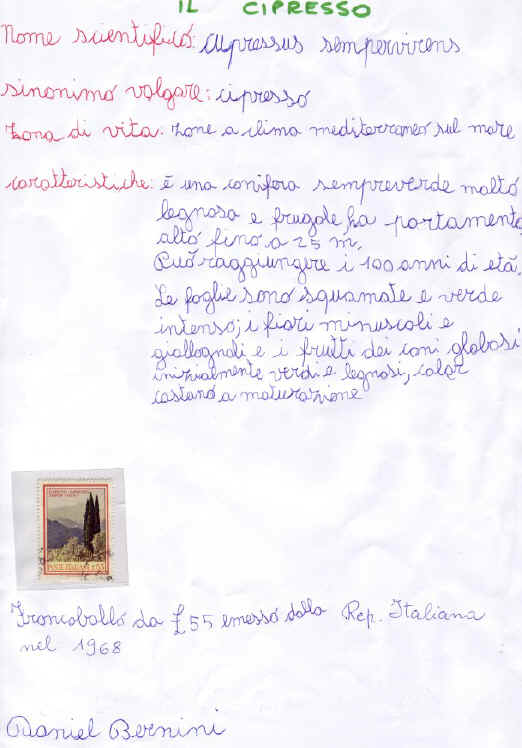 IL CIPRESSO
Nome scientifico: cupressus sempervirens
sinonimo volgare: cipresso
Zona di vita: zone a clima mediterraneo sul mare
caratteristiche: è una conifera sempreverde molto
legnosa e frugale, ha portamento
alto fino a 25 m.
Può raggiungere i 100 anni di età.
Le foglie sono squamate e verde
intenso; i fiori minuscoli e
giallognoli e i frutti dei coni globosi
inizialmente verdi e legnosi, color
castano a maturazione
POSTE ITALIANE L.55
Francobollo da £55 emesso dalla Rep. Italiana
nel 1968
Daniel Bernini